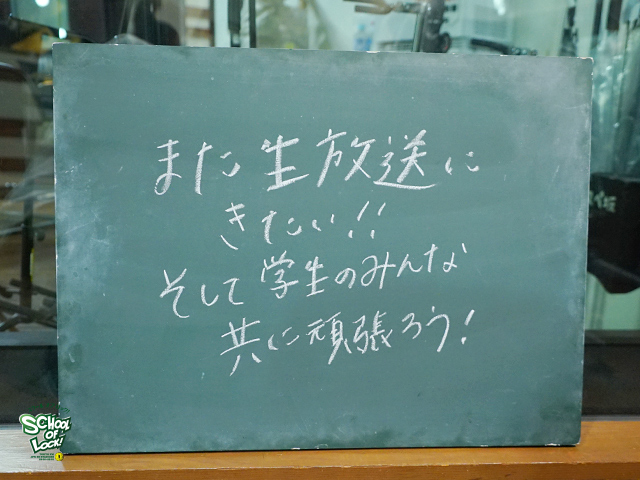 また生放送に
きたい!!
そして学生のみんな
共に頑張ろう!
SCHOOL
OF
LOCK!